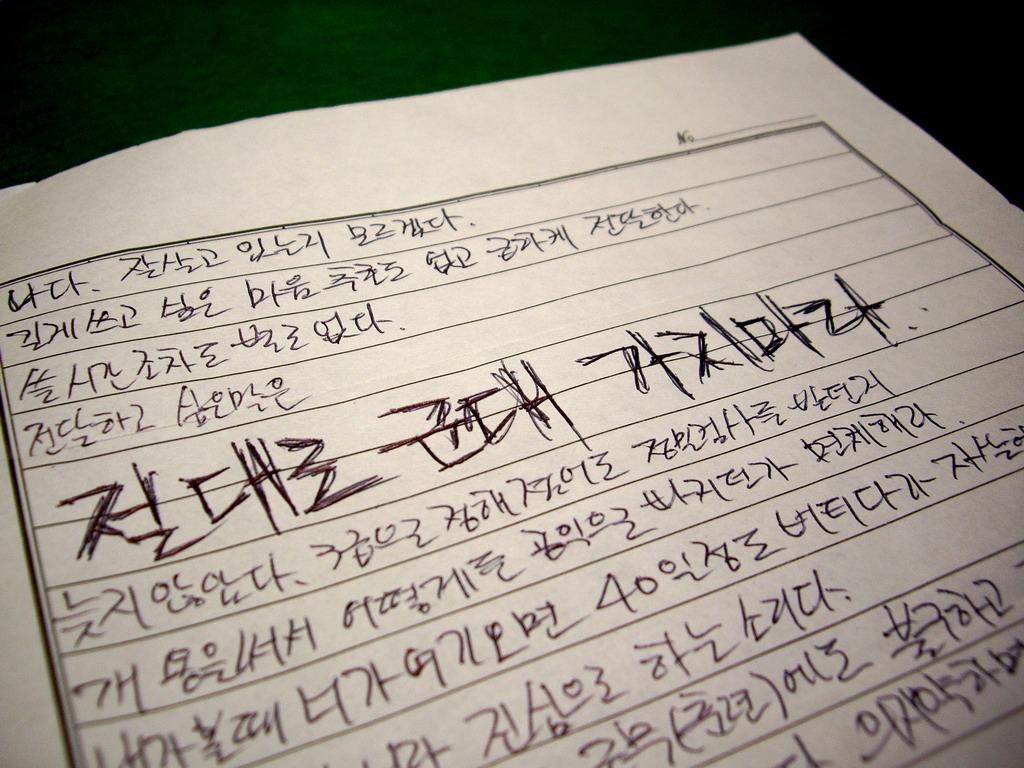 No
나다. 잘살고 있는지 모르겠다.
길게 쓰고 싶은 마음 추호도 없고 급하게 전달한다.
쓸 시간조차도 별로 없다.
전달하고 싶은말은
절대로 군대 가지마라..
늦지 않았다. 3급으로 정해졌어도 정밀검사를 받던지
개 용을써서 어떻게든 공익으로 빠지던가 면제해라.
내가 볼때 너가 여기오면 40일정도 버티다가
진심으로 하는 소리다.
(훈련)에도 불구하고
의지약하며